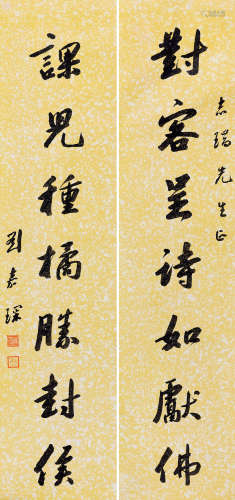 對客呈詩如獻佛
志瑞先生正
課兒種橘勝封侯
劉嘉琛